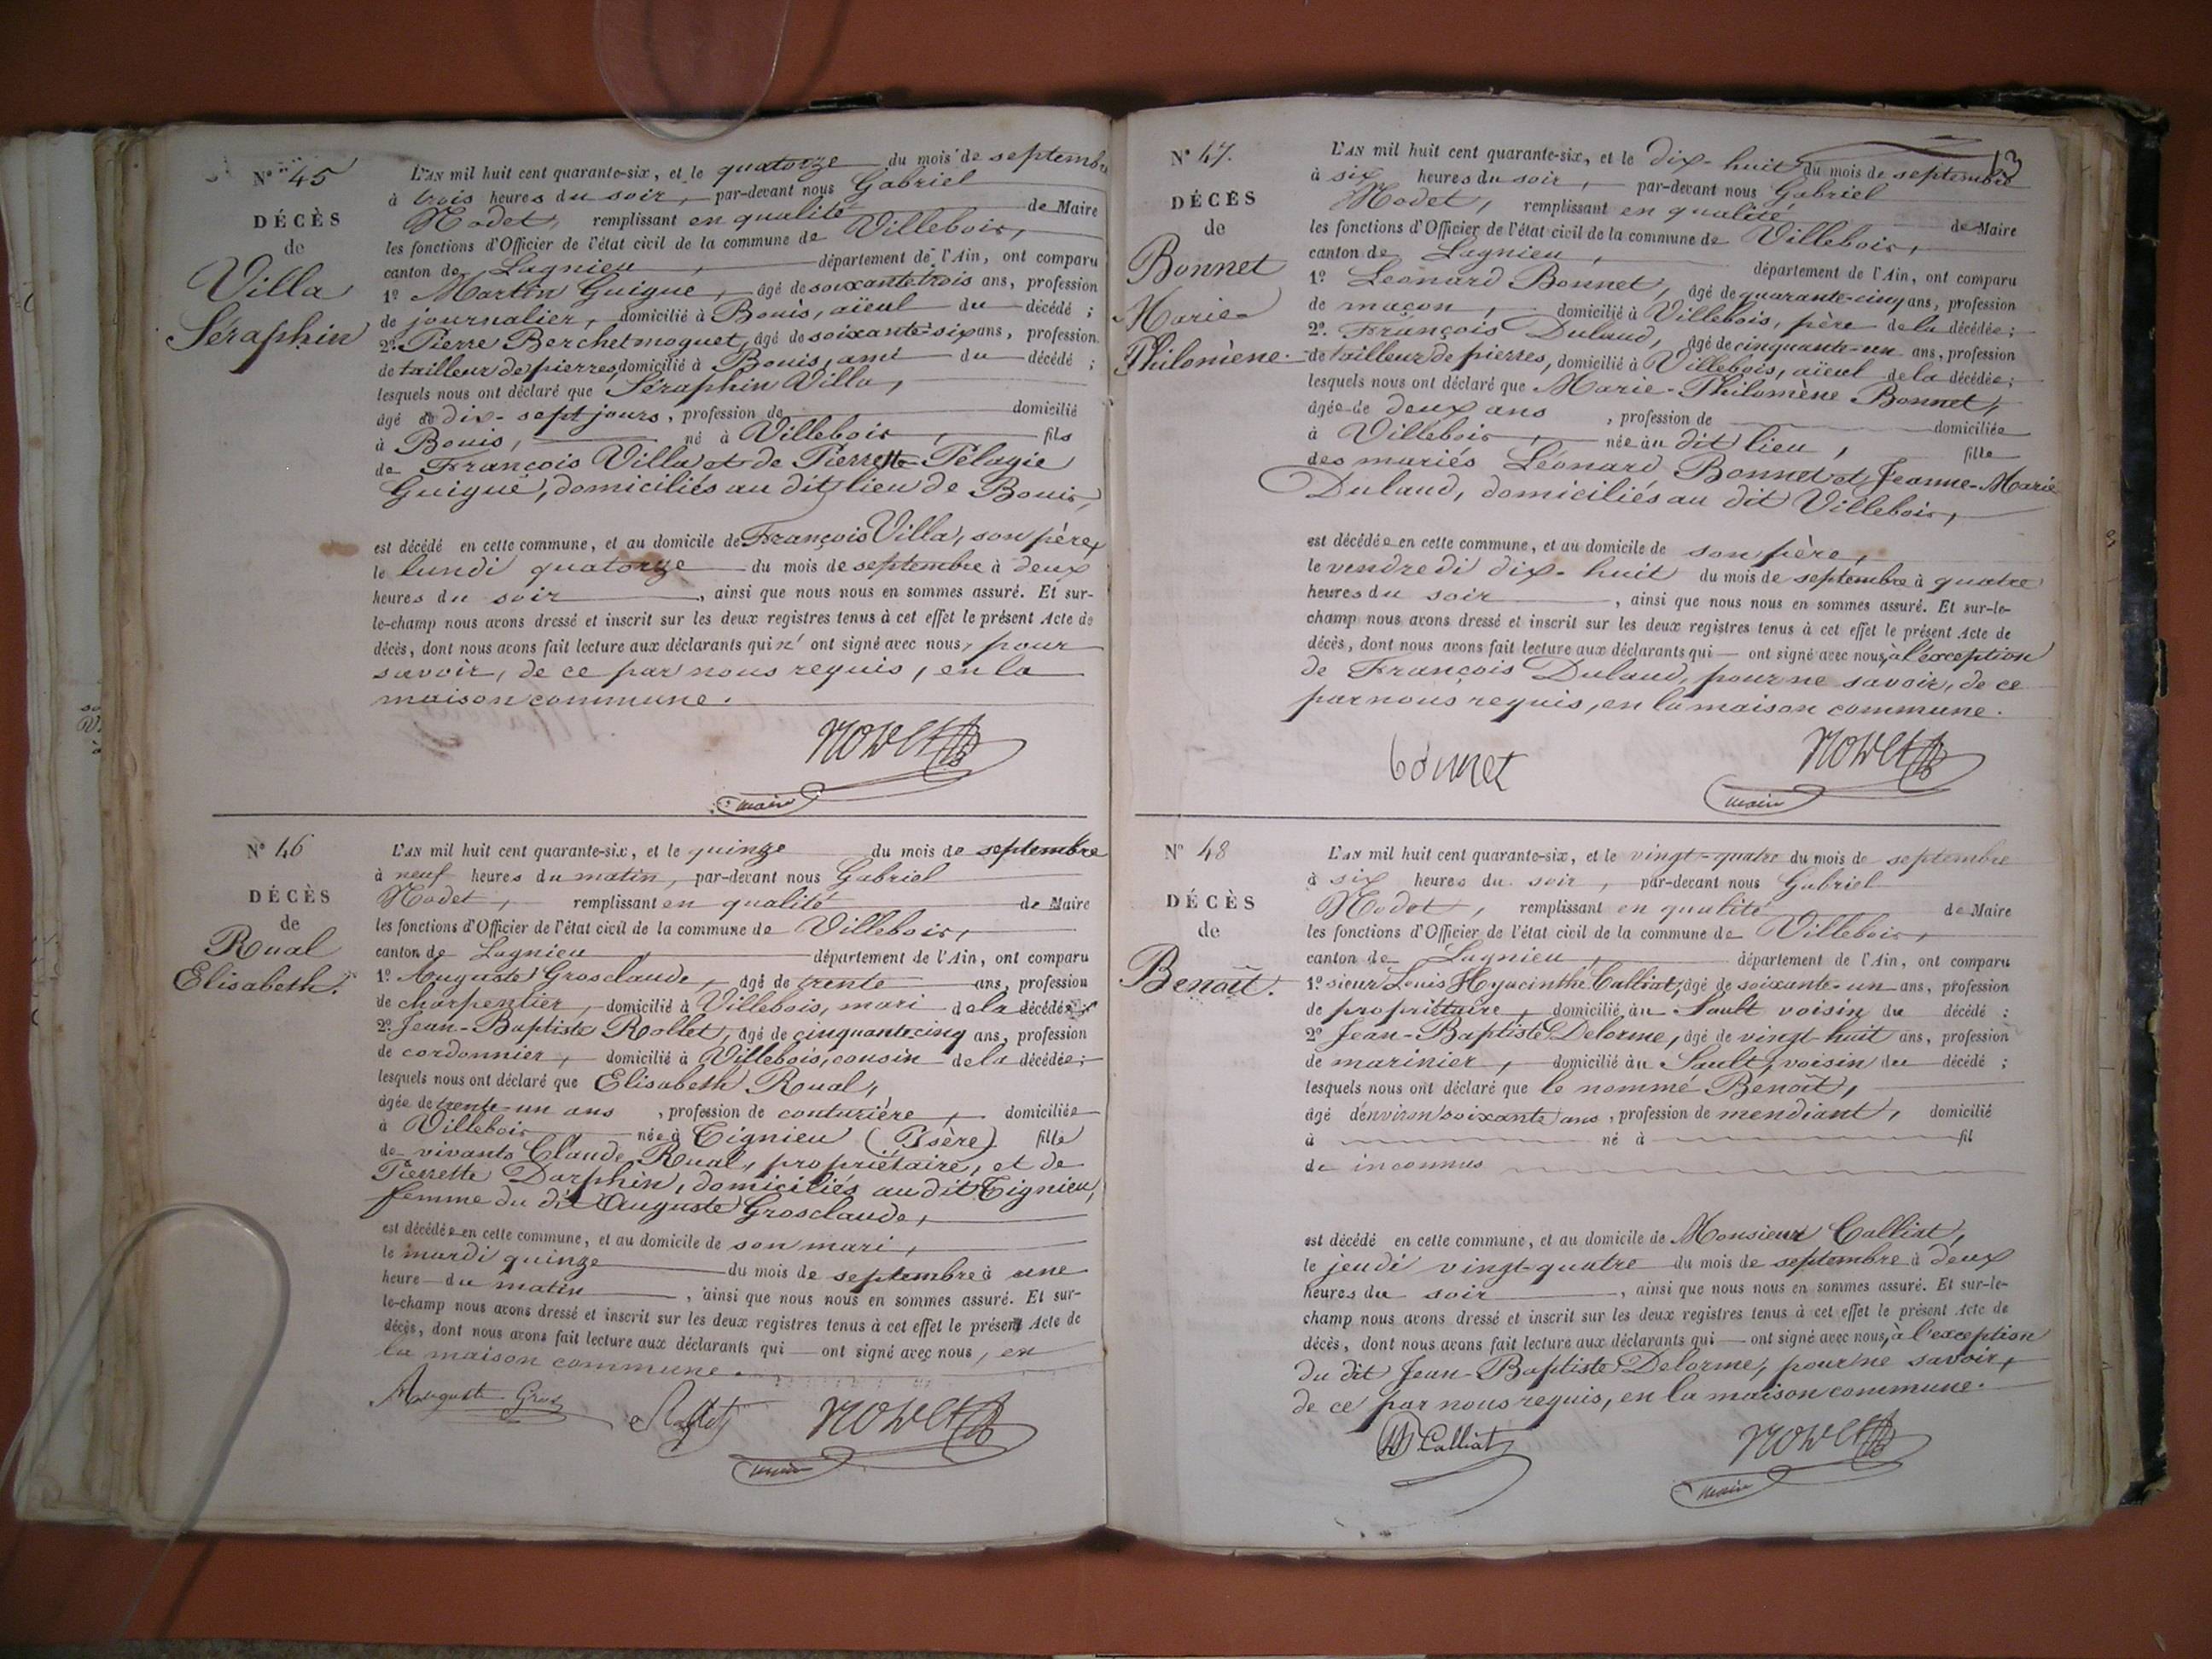 N° 45
DÉCÈS
de
Villa
Séraphin
L'AN mil huit cent quarante-six, et le quatorze du mois de septembre
à trois heures du soir, par-devant nous Gabriel
Nodet, remplissant en qualité de Maire
les fonctions d'Officier de l'état civil de la commune de Villebois,
canton de Lagnieu, département de l'Ain, ont comparu
1° Martin Guigue, âgé de soixante trois ans, profession
de journalier, domicilié à Bouis, aïeul du décédé ;
2° Pierre Berchetmoguet, âgé de soixante-six ans, profession
de tailleur de pierres, domicilié à Bouis, ami du décédé ;
lesquels nous ont déclaré que Séraphin Villa,
âgé de dix-sept jours, profession de domicilié
à Bouis, né à Villebois, fils
de François Villa et de Pierrette-Pélagie
Guigue, domiciliés au dit lieu de Bouis,
est décédé en cette commune, et au domicile de François Villa, son père,
le lundi quatorze du mois de septembre à deux
heures du soir, ainsi que nous nous en sommes assuré. Et sur-
le-champ nous avons dressé et inscrit sur les deux registres tenus à cet effet le présent Acte de
décès, dont nous avons fait lecture aux déclarants qui n'ont signé avec nous, pour
savoir, de ce par nous requis, en la
maison commune.
Nodet
maire
N° 46
DÉCÈS
de
Rual
Elisabeth.
L'AN mil huit cent quarante-six, et le quinze du mois de septembre
à neuf heures du matin, par-devant nous Gabriel
Nodet, remplissant en qualité de Maire
les fonctions d'Officier de l'état civil de la commune de Villebois,
canton de Lagnieu, département de l'Ain, ont comparu
1° Auguste Grosclaude, âgé de trente ans, profession
de charpentier, domicilié à Villebois, mari de la décédée ;
2° Jean-Baptiste Rollet, âgé de cinquante-cinq ans, profession
de cordonnier, domicilié à Villebois, cousin de la décédée ;
lesquels nous ont déclaré que Elisabeth Rual,
âgée de trente-un ans, profession de couturière, domiciliée
à Villebois née à Tignieu (Isère). fille
de vivants Claude Rual, propriétaire, et de
Pierrette Dorphin, domiciliés au dit Tignieu,
femme du dit Auguste Grosclaude,
est décédée en cette commune, et au domicile de son mari,
le mardi quinze du mois de septembre à une
heure du matin, ainsi que nous nous en sommes assuré. Et sur-
le-champ nous avons dressé et inscrit sur les deux registres tenus à cet effet le présent Acte de
décès, dont nous avons fait lecture aux déclarants qui ont signé avec nous, en
la maison commune.
Auguste Gros Nodet
maire
13
N° 47.
DÉCÈS
de
Bonnet
Marie-
Philomène.
L'AN mil huit cent quarante-six, et le dix-huit du mois de septembre
à six heures du soir, par-devant nous Gabriel
Nodet, remplissant en qualité de Maire
les fonctions d'Officier de l'état civil de la commune de Villebois,
canton de Lagnieu, département de l'Ain, ont comparu
1° Léonard Bonnet, âgé de quarante-cinq ans, profession
de maçon, domicilié à Villebois, père de la décédée ;
2° François Dulaud, âgé de cinquante-un ans, profession
de tailleur de pierres, domicilié à Villebois, aïeul de la décédée ;
lesquels nous ont déclaré que Marie-Philomène Bonnet,
âgée de deux ans, profession de domiciliée
à Villebois, née au dit lieu, fille
des mariés Léonard Bonnet et Jeanne-Marie
Dulaud, domiciliés au dit Villebois,
est décédée en cette commune, et au domicile de son père,
le vendredi dix-huit du mois de septembre à quatre
heures du soir, ainsi que nous nous en sommes assuré. Et sur-le-
champ nous avons dressé et inscrit sur les deux registres tenus à cet effet le présent Acte de
décès, dont nous avons fait lecture aux déclarants qui ont signé avec nous, à l'exception
de François Dulaud, pour ne savoir, de ce
par nous requis, en la maison commune.
bonnet Nodet
maire
N° 48
DÉCÈS
de
Benoît.
L'AN mil huit cent quarante-six, et le vingt-quatre du mois de septembre
à six heures du soir, par-devant nous Gabriel
Nodet, remplissant en qualité de Maire
les fonctions d'Officier de l'état civil de la commune de Villebois,
canton de Lagnieu, département de l'Ain, ont comparu
1° sieur Louis Hyacinthe Calliat, âgé de soixante-un ans, profession
de propriétaire, domicilié au Sault voisin du décédé ;
2° Jean-Baptiste Delorme, âgé de vingt-huit ans, profession
de marinier, domicilié au Sault, voisin du décédé ;
lesquels nous ont déclaré que le nommé Benoît,
âgé d'environ soixante ans, profession de mendiant, domicilié
à né à fil
de inconnus
est décédé en cette commune, et au domicile de Monsieur Calliat,
le jeudi vingt-quatre du mois de septembre à deux
heures du soir, ainsi que nous nous en sommes assuré. Et sur-le-
champ nous avons dressé et inscrit sur les deux registres tenus à cet effet le présent Acte de
décès, dont nous avons fait lecture aux déclarants qui ont signé avec nous, à l'exception
du dit Jean-Baptiste Delorme, pour ne savoir,
de ce par nous requis, en la maison commune.
Calliat Nodet
maire